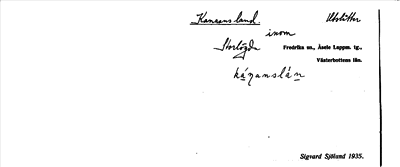 Kanaans land. Ubslätter
inom
Stortögda Fredrika sn., Åsele Lappm. tg.,
Västerbottens län.
kánanslán
Sigvard Sjölund 1935.